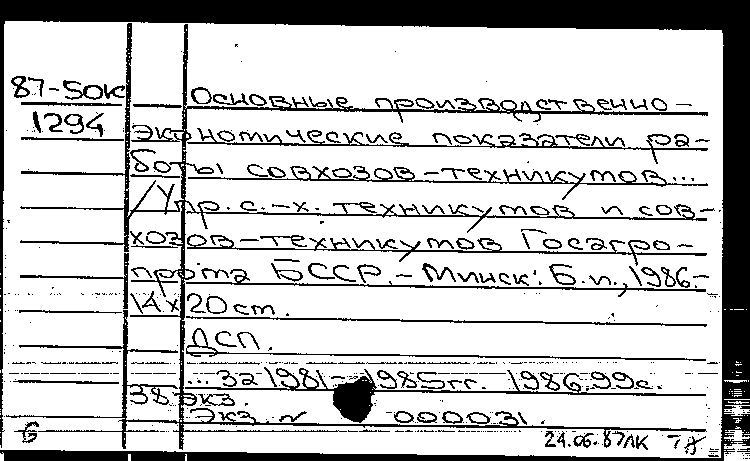 87-50к Основные производственно-
1294 экономические показатели ра-
боты совхозов-техникумов...
/Упр. с.-х. техникумов и сов-
хозов-техникумов Госагро-
прома БССР.- Минск: Б.и., 1986.-
14х20 см.
ДСП.
...за 1981-1985гг. 1986. 99с.
38 экз.
Экз. № 000031.
6 24.06.87ЛК